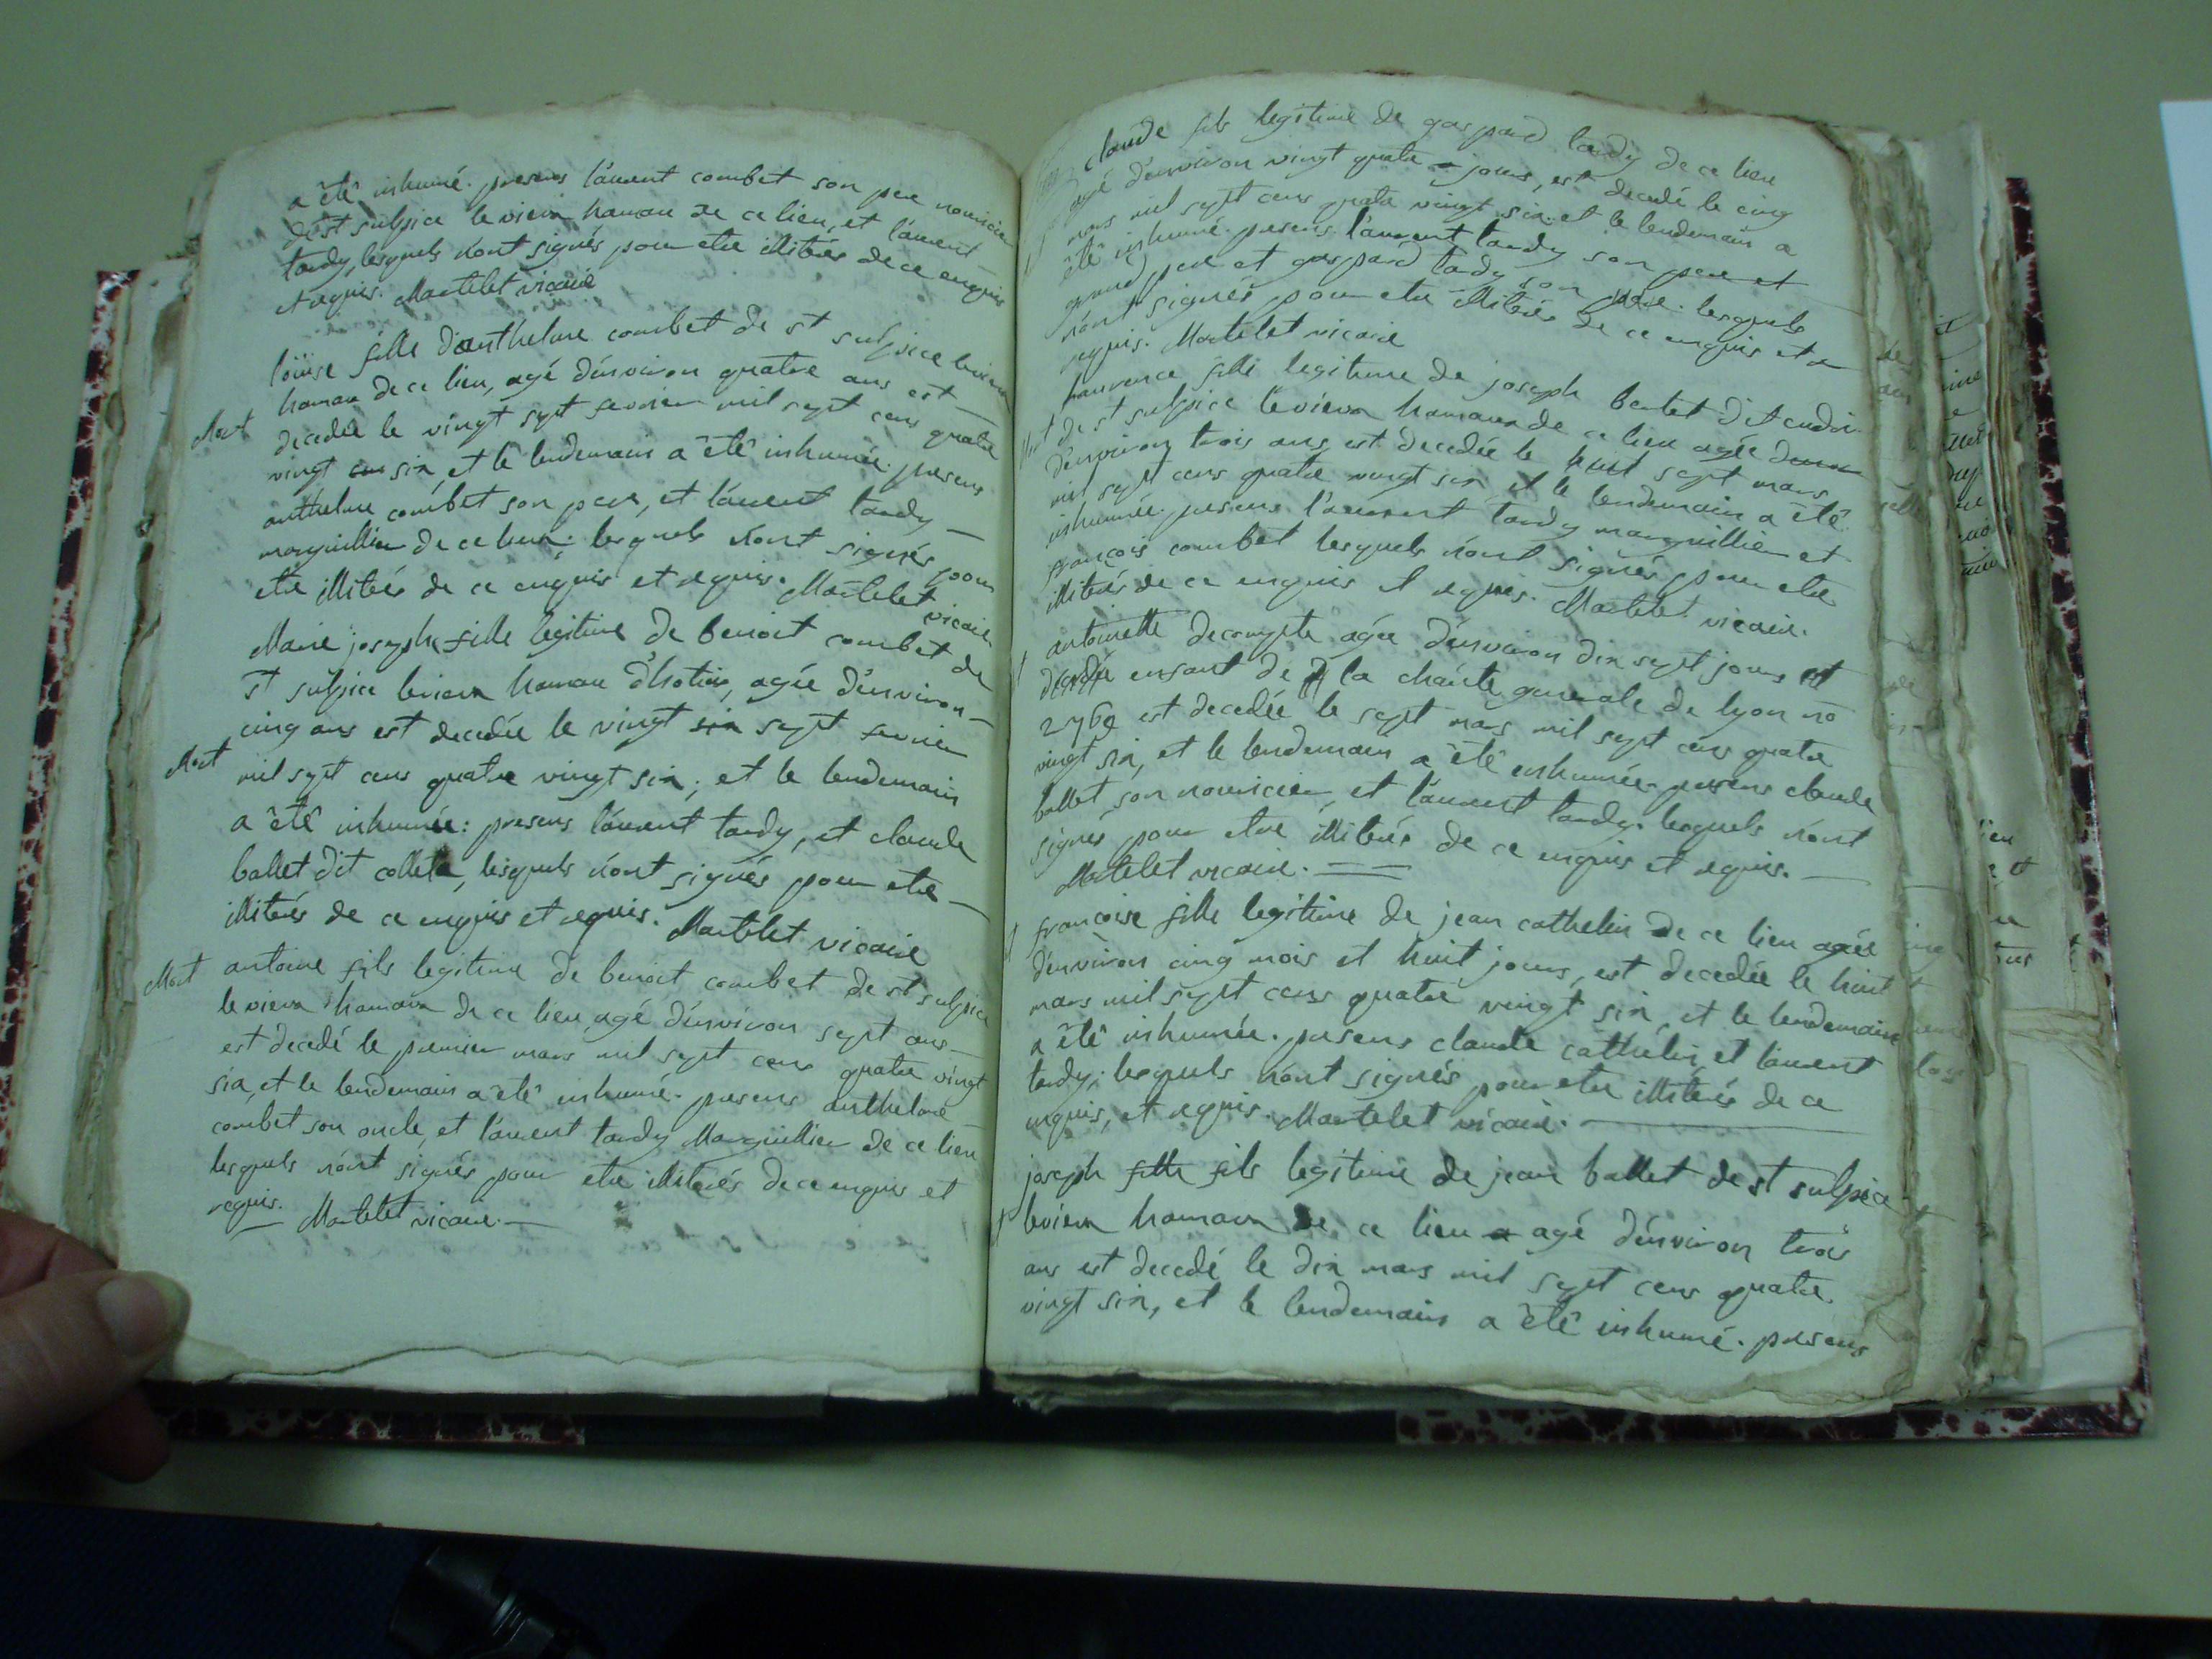 a êté inhumé. presens laurent combet son pere nouricier
de st sulpice le vieux hameau de ce lieu, et laurent
tardy, lesquels n'ont signés pour etre illiterés de ce enquis
et requis. Martelet vicaire
loüise fille d'anthelme combet de st sulpice le vieux
hameau de ce lieu, agé d'environ quatre ans est
Mort
decedée le vingt sept fevrier mil sept cens quatre
vingt six, et le lendemain a êté inhumée. presens
anthelme combet son pere, et laurent tardy
marguillier de ce lieu; lesquels n'ont signés pour
etre illiterés de ce enquis et requis. Martelet vicaire
Marie josephe fille legitime de benoit combet de
st sulpice le vieux hameau d'hotier, agée d'environ
cinq ans est decedée le vingt six sept fevrier
Mort
mil sept cens quatre vingt six; et le lendemain
a êté inhumée: presens laurent tardy, et claude
ballet dit collet, lesquels n'ont signés pour etre
illiterés de ce enquis et requis. Martelet vicaire
Mort
antoine fils legitime de benoit combet de st sulpice
le vieux hameau de ce lieu, agé d'environ sept ans
est decedé le premier mars mil sept cens quatre vingt
six, et le lendemain a êté inhumé. presens anthelme
combet son oncle, et laurent tardy Marguillier de ce lieu
lesquels n'ont signés pour etre illiterés de ce enquis et
requis. Martelet vicaire.
claude fils legitime de gaspard tardy de ce lieu
agé d'environ vingt quatre jours, est decedé le cinq
mars mil sept cens quatre vingt six. et le lendemain a
êté inhumé. presens laurent tardy son pere et
grand pere et gaspard tardy son pere. lesquels
n'ont signés pour etre illiterés de ce enquis et
requis. Martelet vicaire
laurence fille legitime de joseph bertet dit
de st sulpice le vieux hameau de ce lieu agée
d'environ trois ans est decedée le sept mars
mil sept cens quatre vingt six et le lendemain a êté
inhumée. presens laurent tardy marguillier et
françois combet lesquels n'ont signés pour etre
illiterés de ce enquis et requis. Martelet vicaire.
antoinette decompte agée d'environ dix sept jours et
enfant de la charité generale de lyon no
2769 est decedée le sept mars mil sept cens quatre
vingt six, et le lendemain a êté inhumée. presens claude
ballet son nouricier, et laurent tardy. lesquels n'ont
signés pour etre illiterés de ce enquis et requis.
Martelet vicaire.
françoise fille legitime de jean cathelin de ce lieu agée
d'environ cinq mois et huit jours, est decedée le huit
mars mil sept cens quatre vingt six, et le lendemain
a êté inhumée. presens claude cathelin, et laurent
tardy; lesquels n'ont signés pour etre illiterés de ce
enquis, et requis. Martelet vicaire.
joseph fille fils legitime de jean ballet de st sulpice
le vieux hameau de ce lieu a agé d'environ trois
ans est decedé le dix mars mil sept cens quatre
vingt six, et le lendemain a êté inhumé. presens